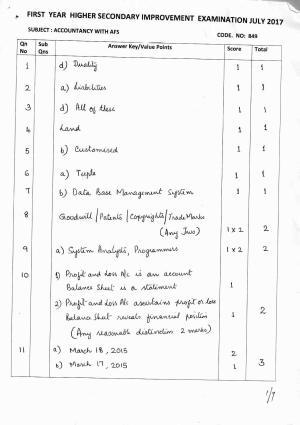 FIRST YEAR HIGHER SECONDARY IMPROVEMENT EXAMINATION JULY 2017
SUBJECT : ACCOUNTANCY WITH AFS CODE. NO: 849
Qn No Sub Qns Answer Key/Value Points Score Total
1 d) Duality 1 1
2 a) Liabilities 1 1
3 d) All of these 1 1
4 Land 1 1
5 b) Customised 1 1
6 a) Tuple 1 1
7 b) Data Base Management System 1 1
8 Goodwill / Patents / Copyrights / Trade Marks
(Any Two) 1 x 2 2
9 a) System Analysts, Programmers 1 x 2 2
10 1) Profit and Loss A/c is an account
Balance Sheet is a statement 1
2) Profit and Loss A/c ascertains profit or loss
Balance Sheet reveals financial position 1 2
(Any reasonable distinction 2 marks)
11 a) March 18, 2015 2
b) March 17, 2015 1 3
1/7